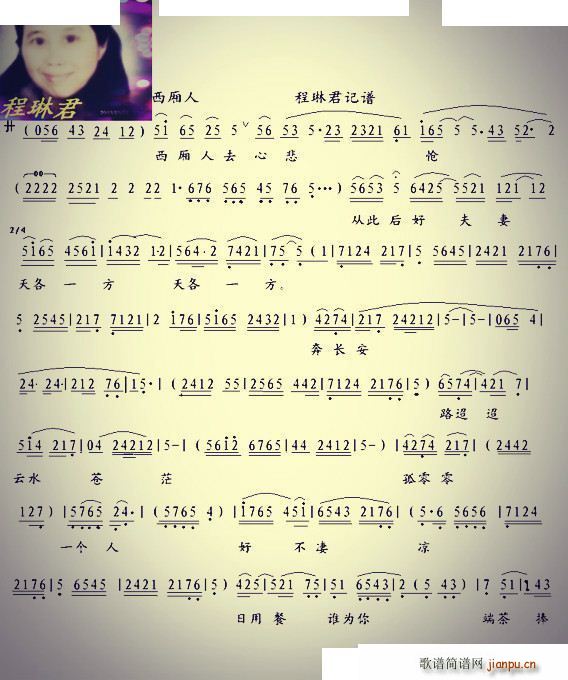 程琳君
西厢人 程琳君记谱
サ (056 43 24 12) 5i 65 25 5 ∨ 56 53 5·23 2321 61 i65 5 5·43 52· 2
西厢人去心悲 怆
(2222 2521 2 2 22 1·676 565 45 76 5···) 5653 5 6425 5521 121 12
从此后好 夫 妻
2/4
5i65 456i|i432 1·2|564·2 7421|75 5 (1|7124 217|5 5645|2421 2176|
天各一方 天各一方。
5 2545|217 7121|2 i76|5i65 2432|1) 4274|217 24212|5-|5-|065 4|
奔长安
24·24·|212 76|15·|(2412 55|2565 442|7124 2176|5) 6574|421 7|
路迢迢
5i4 217|04 24212|5-|(56i2 6765|44 2412|5-|4274 217|(2442
云水 苍 茫 孤零零
127)|5765 24·|(5765 4)|i765 45i|6543 2176|(5·6 5656|7124
一个人 好 不凄 凉
2176|5 6545|2421 2176|5) 425|521 75|51 6543|2 (5 43)|7 51|143
日用餐 谁为你 端茶捧
歌谱简谱网 jianpu.cn